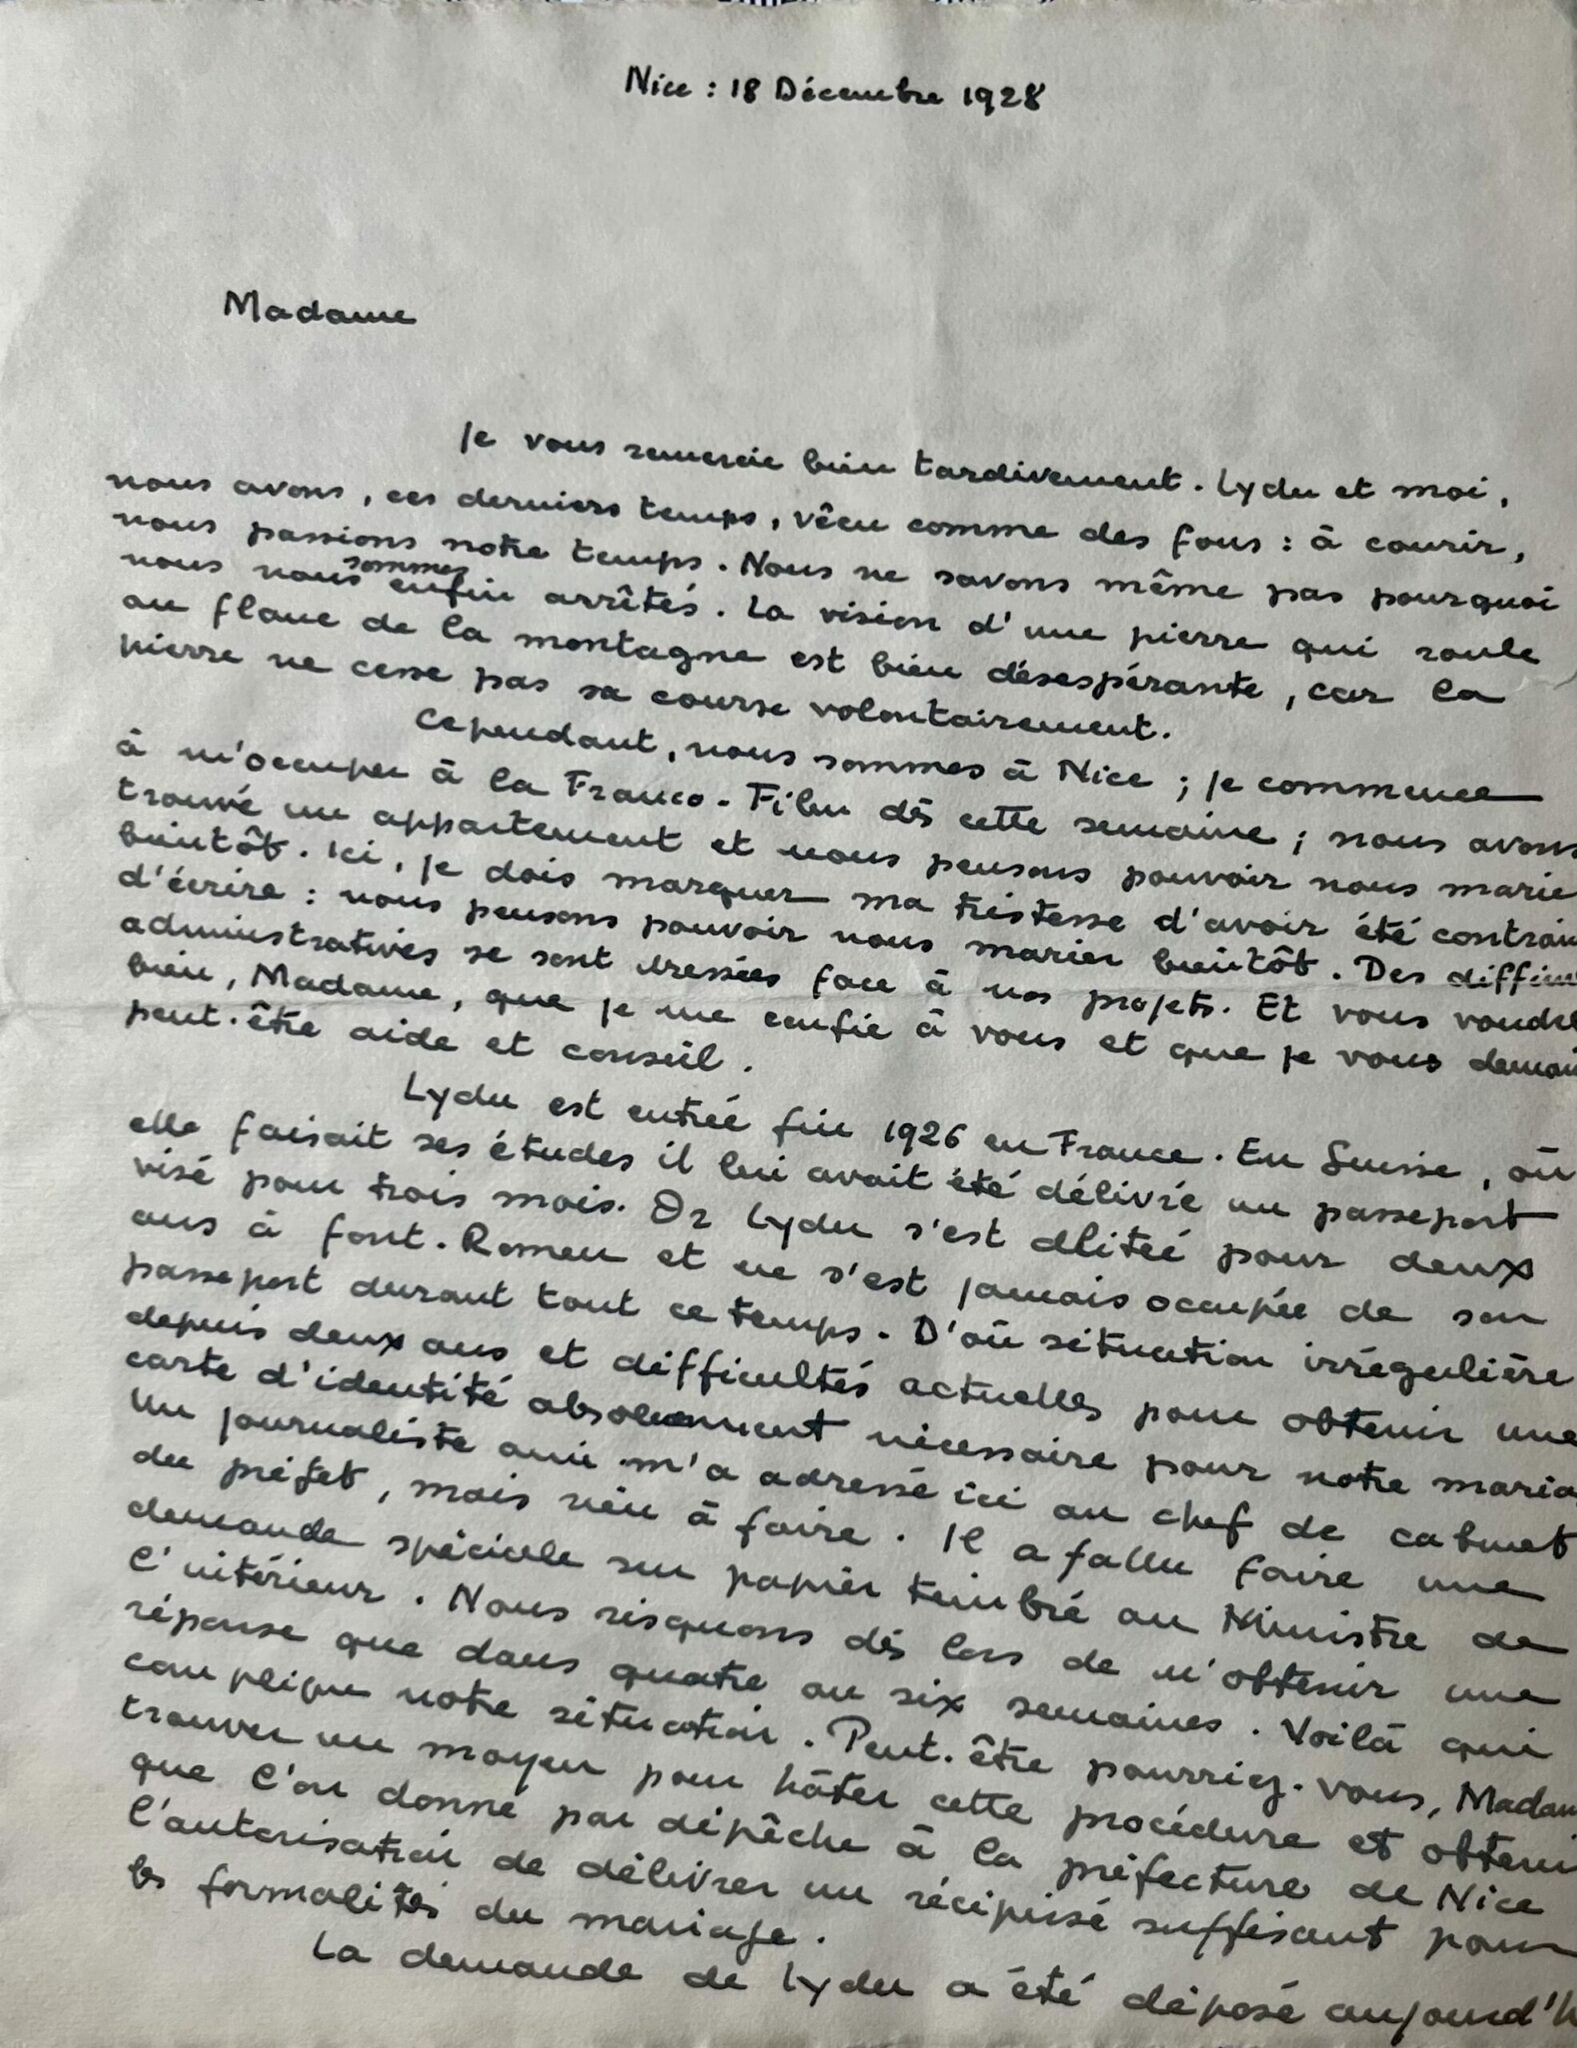 Nice : 18 Décembre 1928
Madame
Je vous remercie bien tardivement. Lydu et moi,
nous avons, ces derniers temps, vécu comme des fous : à courir,
nous passions notre temps. Nous ne savons même pas pourquoi
nous nous sommes enfin arrêtés. La vision d'une pierre qui roule
au flanc de la montagne est bien désespérante, car la
pierre ne cesse pas sa course volontairement.
Cependant, nous sommes à Nice ; je commence
à m'occuper à la Franco-Film dès cette semaine ; nous avons
trouvé un appartement et nous pensons pouvoir nous marie
bientôt. Ici, je dois marquer ma tristesse d'avoir été contrain
d'écrire : nous pensons pouvoir nous marier bientôt. Des difficu
administratives se sont dressées face à nos projets. Et vous voudre
bien, Madame, que je me confie à vous et que je vous deman
peut-être aide et conseil.
Lydu est entrée fin 1926 en France. En Suisse, où
elle faisait ses études il lui avait été délivré un passeport
visé pour trois mois. Or Lydu s'est alitée pour deux
ans à Font-Romeu et ne s'est jamais occupée de son
passeport durant tout ce temps. D'où situation irrégulière
depuis deux ans et difficultés actuelles pour obtenir une
carte d'identité absolument nécessaire pour notre maria
Un journaliste ami m'a adressé ici au chef de cabinet
du préfet, mais rien à faire. Il a fallu faire une
demande spéciale sur papier timbré au Ministre de
l'intérieur. Nous risquons dès lors de n'obtenir une
réponse que dans quatre ou six semaines. Voilà qui
complique notre situation. Peut-être pourriez-vous, Madam
trouver un moyen pour hâter cette procédure et obteni
que l'on donne par dépêche à la préfecture de Nice
l'autorisation de délivrer un récipissé suffisant pour
les formalités du mariage.
La demande de Lydu a été déposé aujourd'h